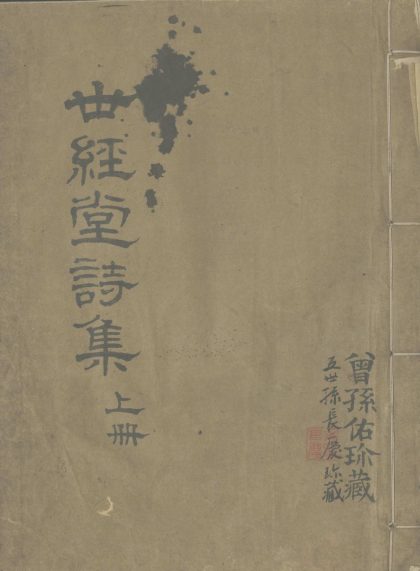 曾孫佑珍藏
五世孫長慶珍藏
丗經堂詩集 上冊